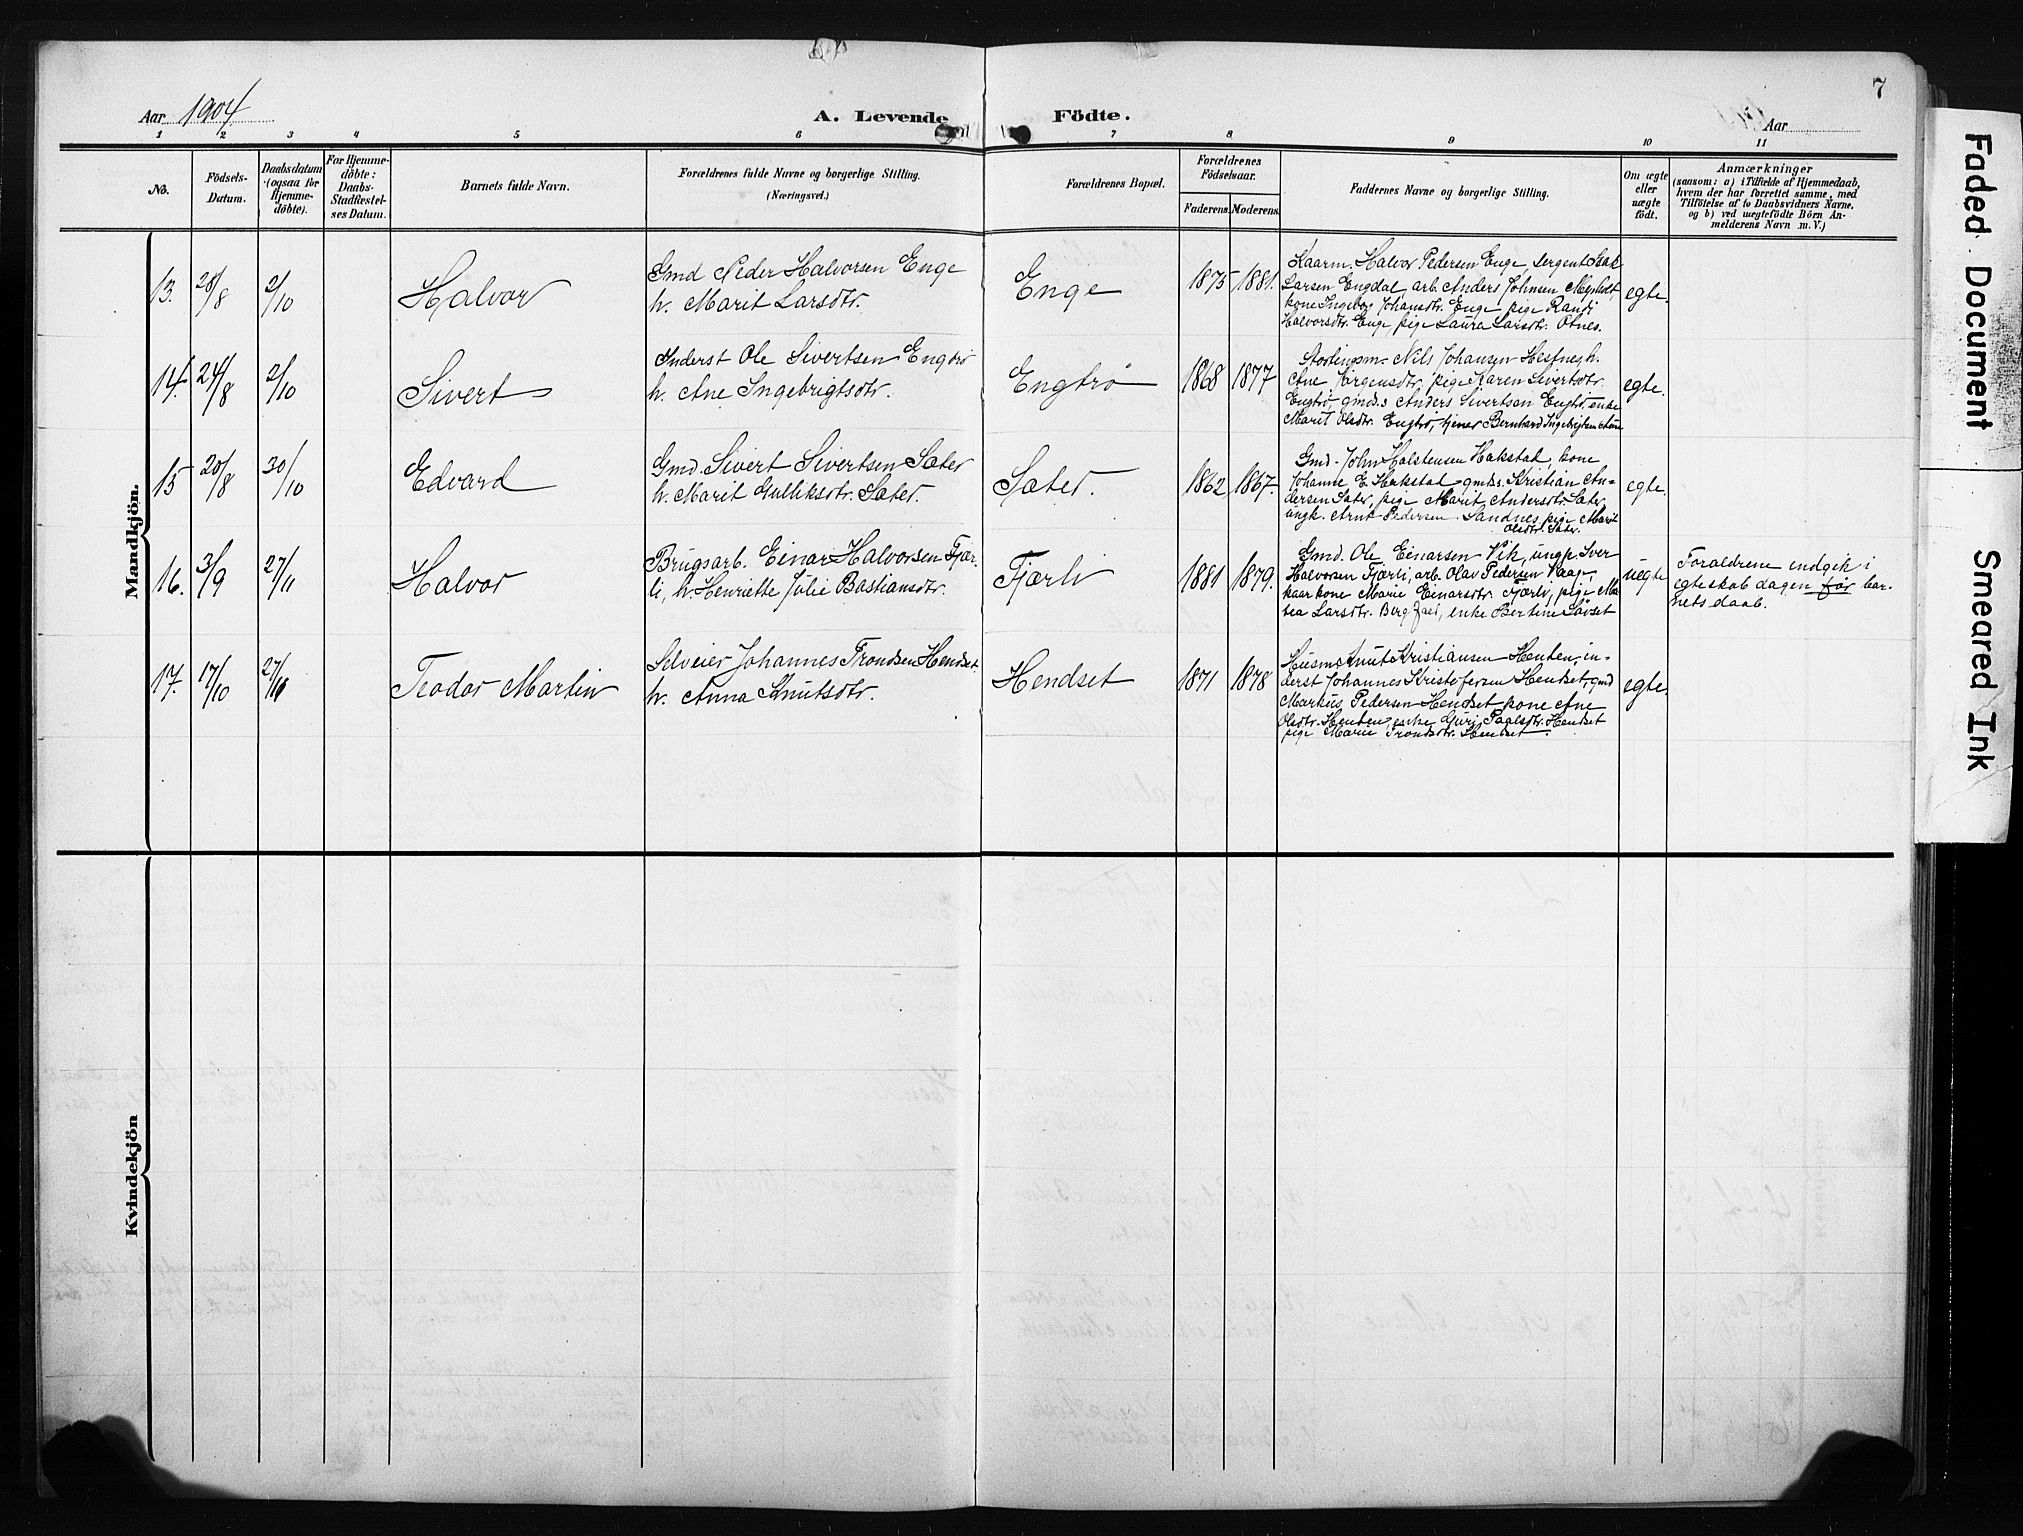 7
Aar 1904
A. Levende Födte.
Aar
1 2 3 4 5 6 7 8 9 10 11
No.
Födsels-
Datum.
Daabsdatum
(ogsaa for
Hjemme-
døbte).
For Hjemme-
døbte:
Daabs-
Stadfestel-
ses Datum.
Barnets fulde Navn.
Forældrenes fulde Navne og borgerlige Stilling.
(Næringsvei.)
Forældrenes Bopæl.
Forældrenes
Födselsaar.
Faderens. Moderens.
Faddernes Navne og borgerlige Stilling.
Om ægte
eller
uægte
födt.
Anmærkninger
(saasom: a) i Tilfælde af Hjemmedaab,
hvem der har forrettet samme, med
Tilföielse af to Daabsvidners Navne.
og b) ved uægtefödte Börn An-
melderens Navn m. V.)
Mandkjön.
13. 28/8 2/10
Halvor
Gmd Peder Halvorsen Enge
h. Marit Larsdtr.
Enge
1875 1881.
Kaarm. Halvor Pedersen Enge, sergent Isak
Larsen Engdal, arb. Anders Johnsen
kone Ingebor Johansdtr. Enge, pige Randi
Halvorsdtr. Enge, pige Laura Larsdtr. Otnes.
egte.
14. 24/8 2/10
Sivert
Inderst Ole Sivertsen Engtrø
h. Ane Ingebrigtsdtr.
Engtrø
1868 1877
Storlingsm. Nils Johansen Hestnes h.
Ane Jørgensdtr. pige Karen Sivertsdtr.
Engtrø, gmds. s Anders Sivertsen Engtrø, enke
Marit Olsdtr. Engtrø, tjener Bernhard Ingebrigtsen
egte.
15 20/8 30/10
Edvard
Gmd. Sivert Sivertsen Sæter
h. Marit Gulliksdtr. Sæter.
Sæter.
1862 1867.
Gmd. John Halstensen Hakstal, kone
Johanne E. Hakstal gmds. Kristian An-
dersen Sæter, pige Marit Andersdtr. Sæter,
ungk. Arnt Pedersen Sandnes pige Marit
Olsdtr. Sæter.
egte.
16. 3/9 27/11
Halvor
Brugsarb. Einar Halvorsen Fjær-
li, h. Henriette Julie Bastiansdtr.
Fjærli
1881 1879.
Gmd. Ole Einarsen Vik, ungk. Iver
Halvorsen Fjærli, arb. Olav Pedersen Vaag,
kaar kone Marie Einarsdtr. Fjærli, pige Ma-
tea Larsdtr. Berg, enke Bertine Løvset
uegte
Forældrene indgik i
egteskab dagen før bar-
nets daab.
17. 17/10 27/11
Teodor Martin
Selveier Johannes Trondsen Hendset
h. Anna Knutsdtr.
Hendset
1871 1878
Husm. Knut Kristiansen Henden, in-
derst Johannes Kristofersen Hendset, gmd
Markus Pedersen Hendset kone Ane
Olsdtr. Henden, enke Guri Paalsdtr. Hendset
pige Marie Trondsdtr. Hendset.
egte.
Kvindekjön
Faded Document
Smeared Ink